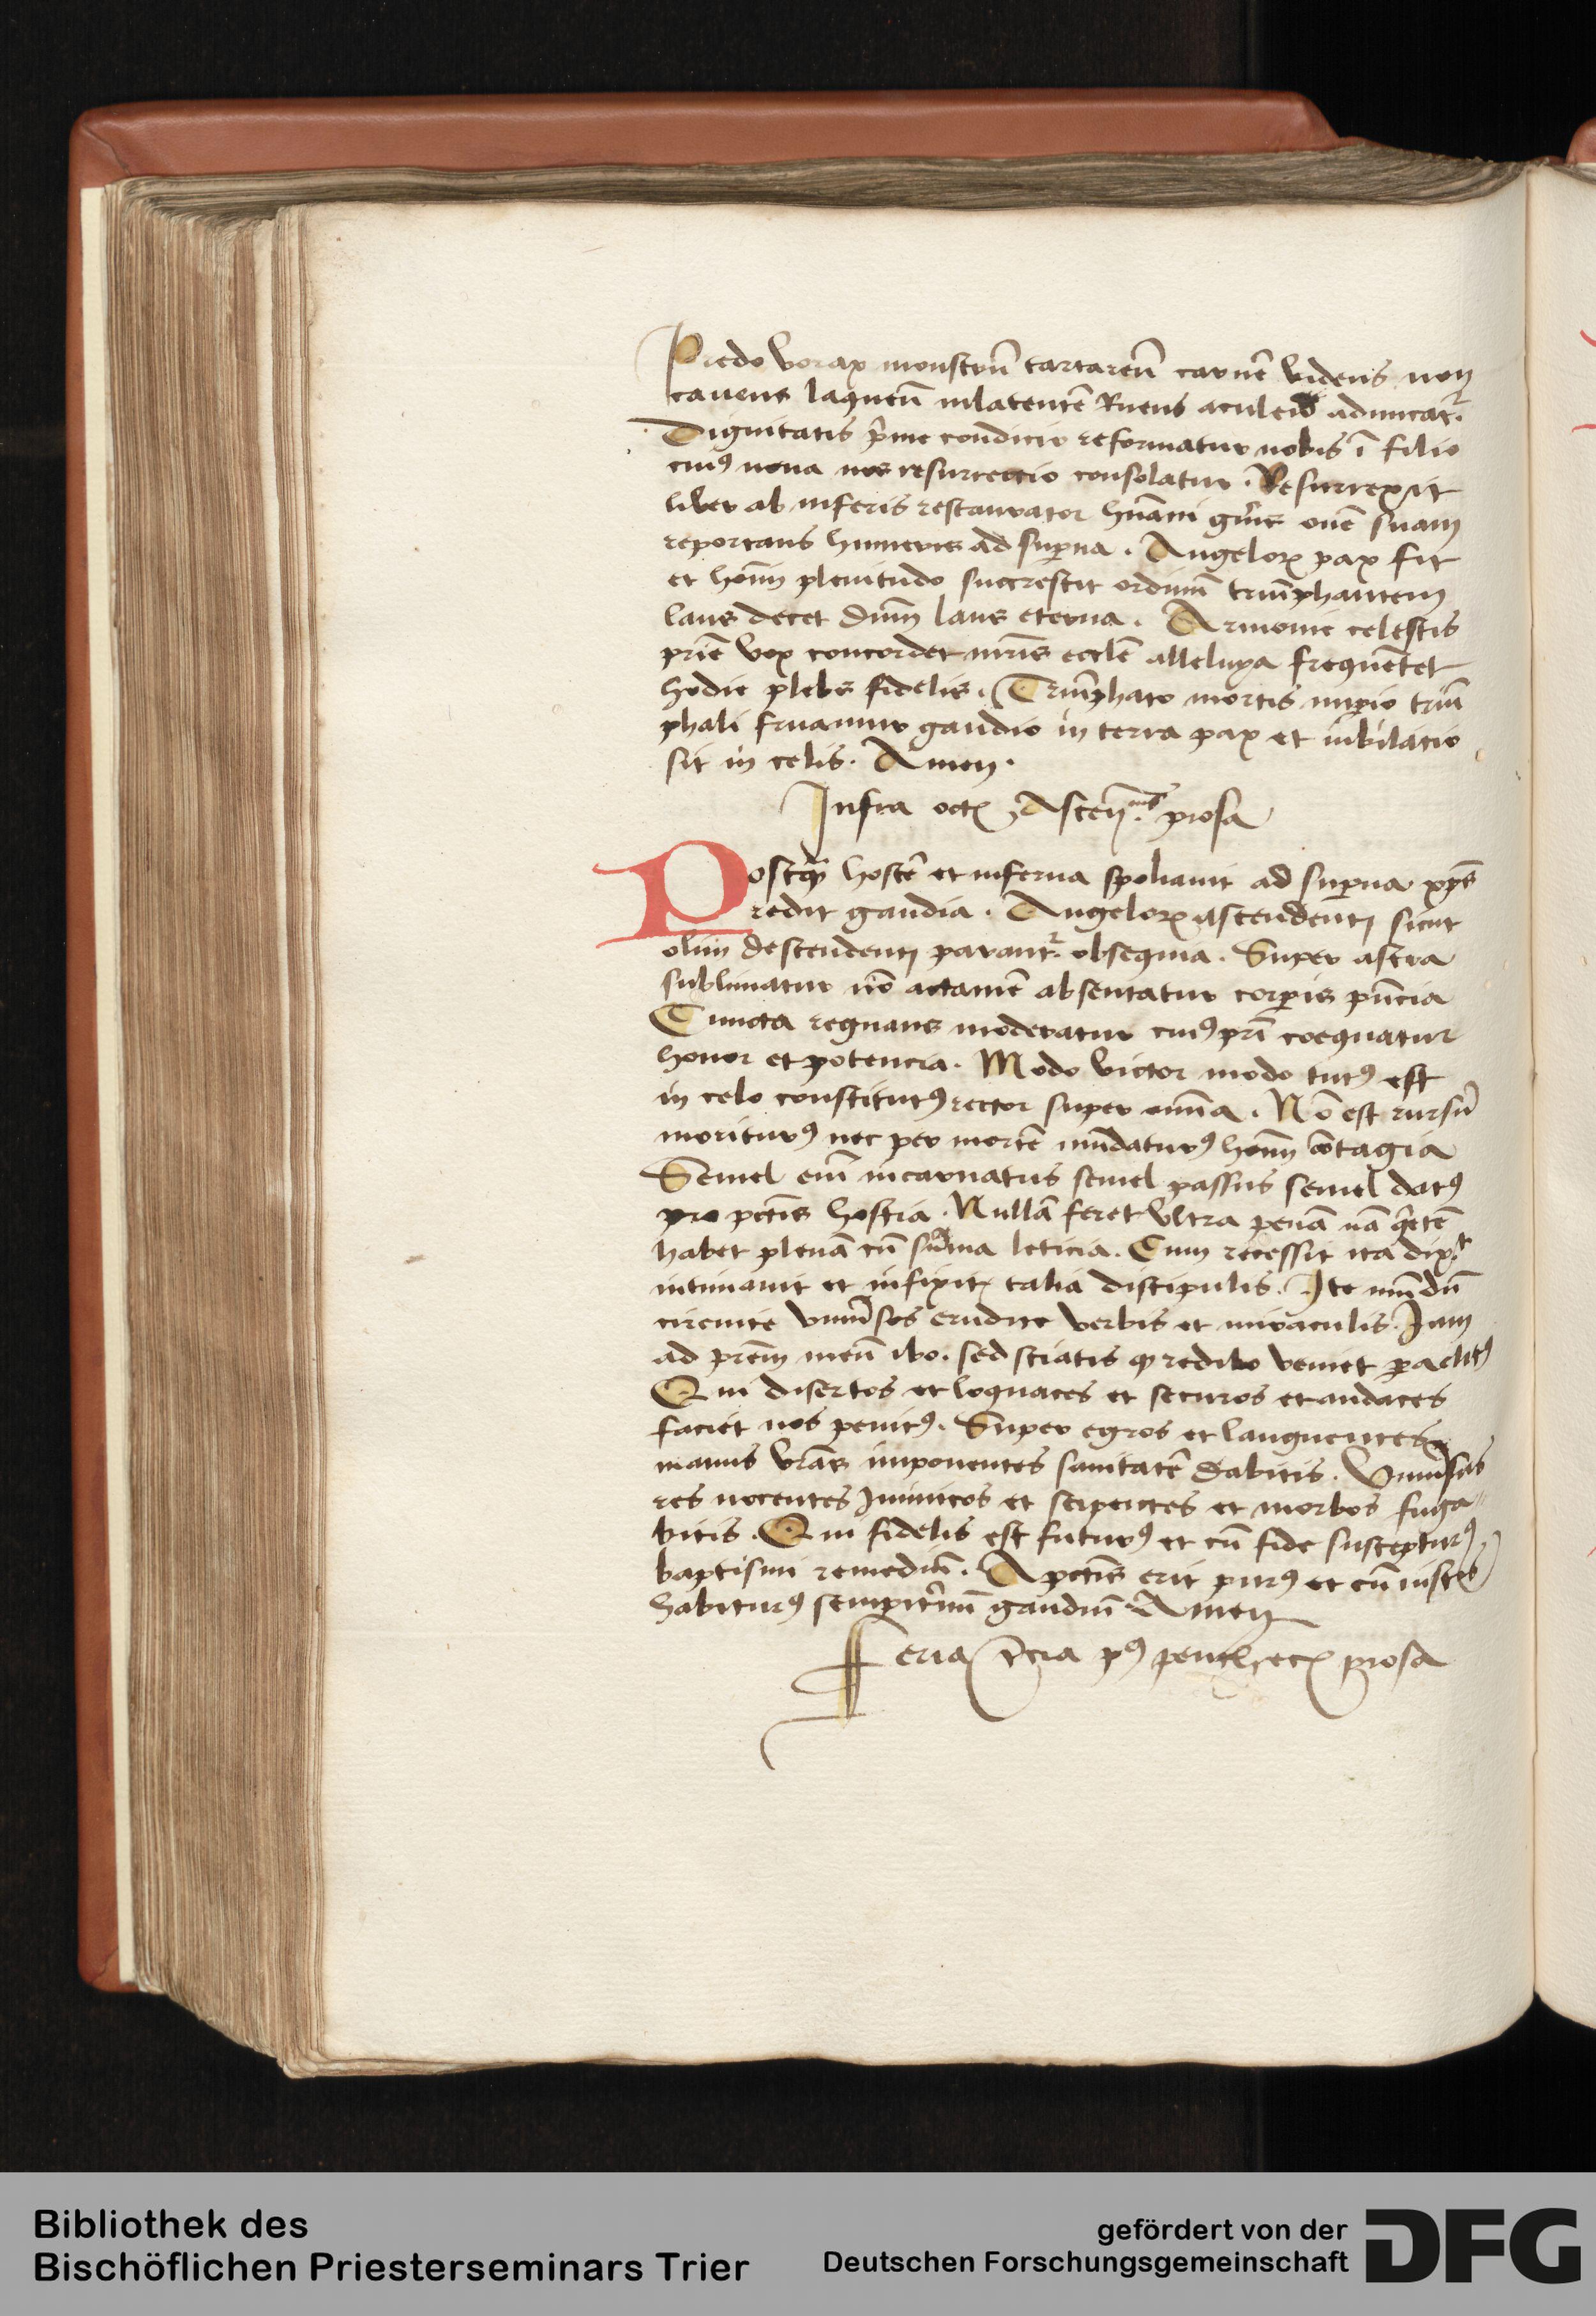 Predo vorax monstrū tartareū carnē videns non
cauens laqueū inlatentē Ruens aculeo aduncat̉.
Dignitatis p̄me condicio reformatur nobis ī filio
cuiꝰ noua nos resurrectio consolatur. Resurrexit
liber ab inferis restaurator hūani gn̄is ouē suam
reportans humeris ad suꝑna. Angeloꝝ pax fit
et hoīm plenitudo succrescit ordinū triūphantem
laus decet dn̄m laus eterna. Armonie celestis
prīe vox concordet mr̄is eccl̄e alleluya frequētet
hodie plebs fidelis. Triūphato mortis imꝑio triū
phali fruamur gaudio in terra pax et iubilatio
sit in celis. Amen.
Infra octꝭ Ascen̄.nis prosa
Postq̄ hostē et inferna spoliauit ad suꝑna xp̄s
redit gaudia. Angeloꝝ ascendenti sicut
olim descendenti parant̉ obsequia. Super astra
sublimatur nō actamē absentatur corꝑis pn̄cia
Cuncta regnans moderatur cuiꝰ pr̄i coequatur
honor et potencia. Modo victor modo tutꝰ est
in celo constitutꝰ rector super om̄ia. Nō est rursū
moriturꝰ nec per mortē mūdaturꝰ hoīm ꝯtagia
Semel em̄ incarnatus semel passus semel datꝰ
pro pctīs hostia. Nullā feret vltra penā nā q̄etē
habet plenā cū sūma leticia. Cum recessit ita dix.t
intimauit et infixit talia discipulis. Ite mūdū
circuite vniūsos erudite verbis et miraculis. Iam
ad prēm meū ibo. sed sciatis ꝙ redibo veniet ꝑaclitꝰ
Qui disertos et loquaces et securos et audaces
faciet vos penitꝰ. Super egros et languentes
manus vr̄as imponentes sanitatē dabitis. Vniūsas
res nocentes Inimicos et serpentes et morbos fuga
bitis. Qui fidelis est futurꝰ et cū fide suscepturꝰ
baptismi remediū. A pctīs erit purꝰ et cū iustis
habiturꝰ sempit̄nū gaudiū Amen
Feria t̄cia pꝰ penthecꝭ prosa
Bibliothek des
Bischöflichen Priesterseminars Trier
gefördert von der
Deutschen Forschungsgemeinschaft
DFG